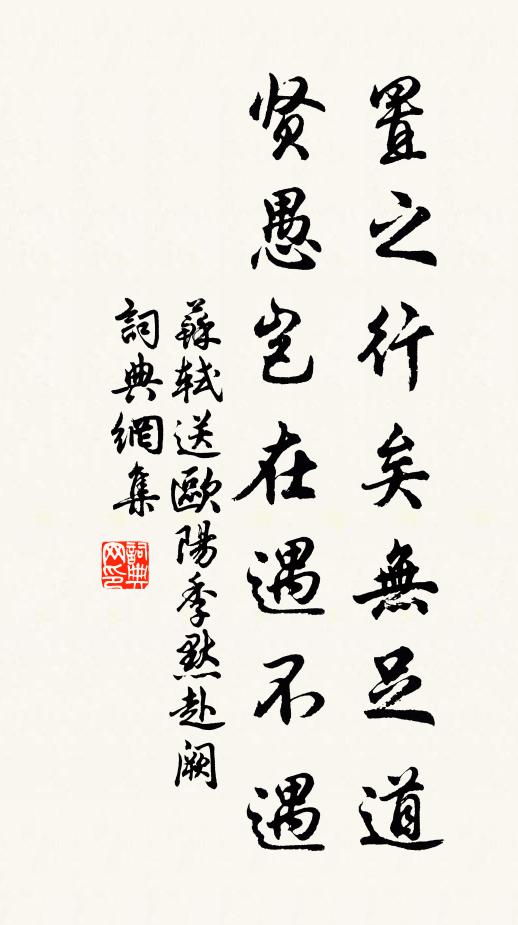 置之行矣無足道
贤愚岂在遇不遇
蘇軾送歐陽季默赴阙
詞典網集
詞典网印